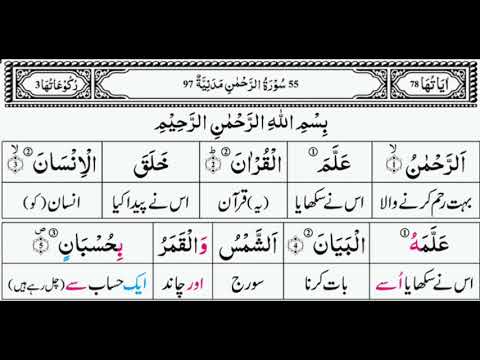 اٰيَاتُهَا 78 55 سُوْرَةُ الرَّحْمٰنِ مَدَنِيَّةٌ 97 رُكُوْعَاتُهَا 3
بِسْمِ اللّٰهِ الرَّحْمٰنِ الرَّحِيْمِ
اَلرَّحْمٰنُ ۙ﴿1﴾ عَلَّمَ ① الْقُرْاٰنَ ② ؕ﴿2﴾ خَلَقَ الْاِنْسَانَ ② ۙ﴿3﴾
بہت رحم کرنے والا اس نے سکھایا (یہ) قرآن اس نے پیدا کیا انسان (کو)
عَلَّمَهُ ① الْبَيَانَ ② ﴿4﴾ اَلشَّمْسُ وَالْقَمَرُ بِحُسْبَانٍ ③ ۪﴿5﴾
اس نے سکھایا اُسے بات کرنا سورج اور چاند ایک حساب سے (چل رہے ہیں)